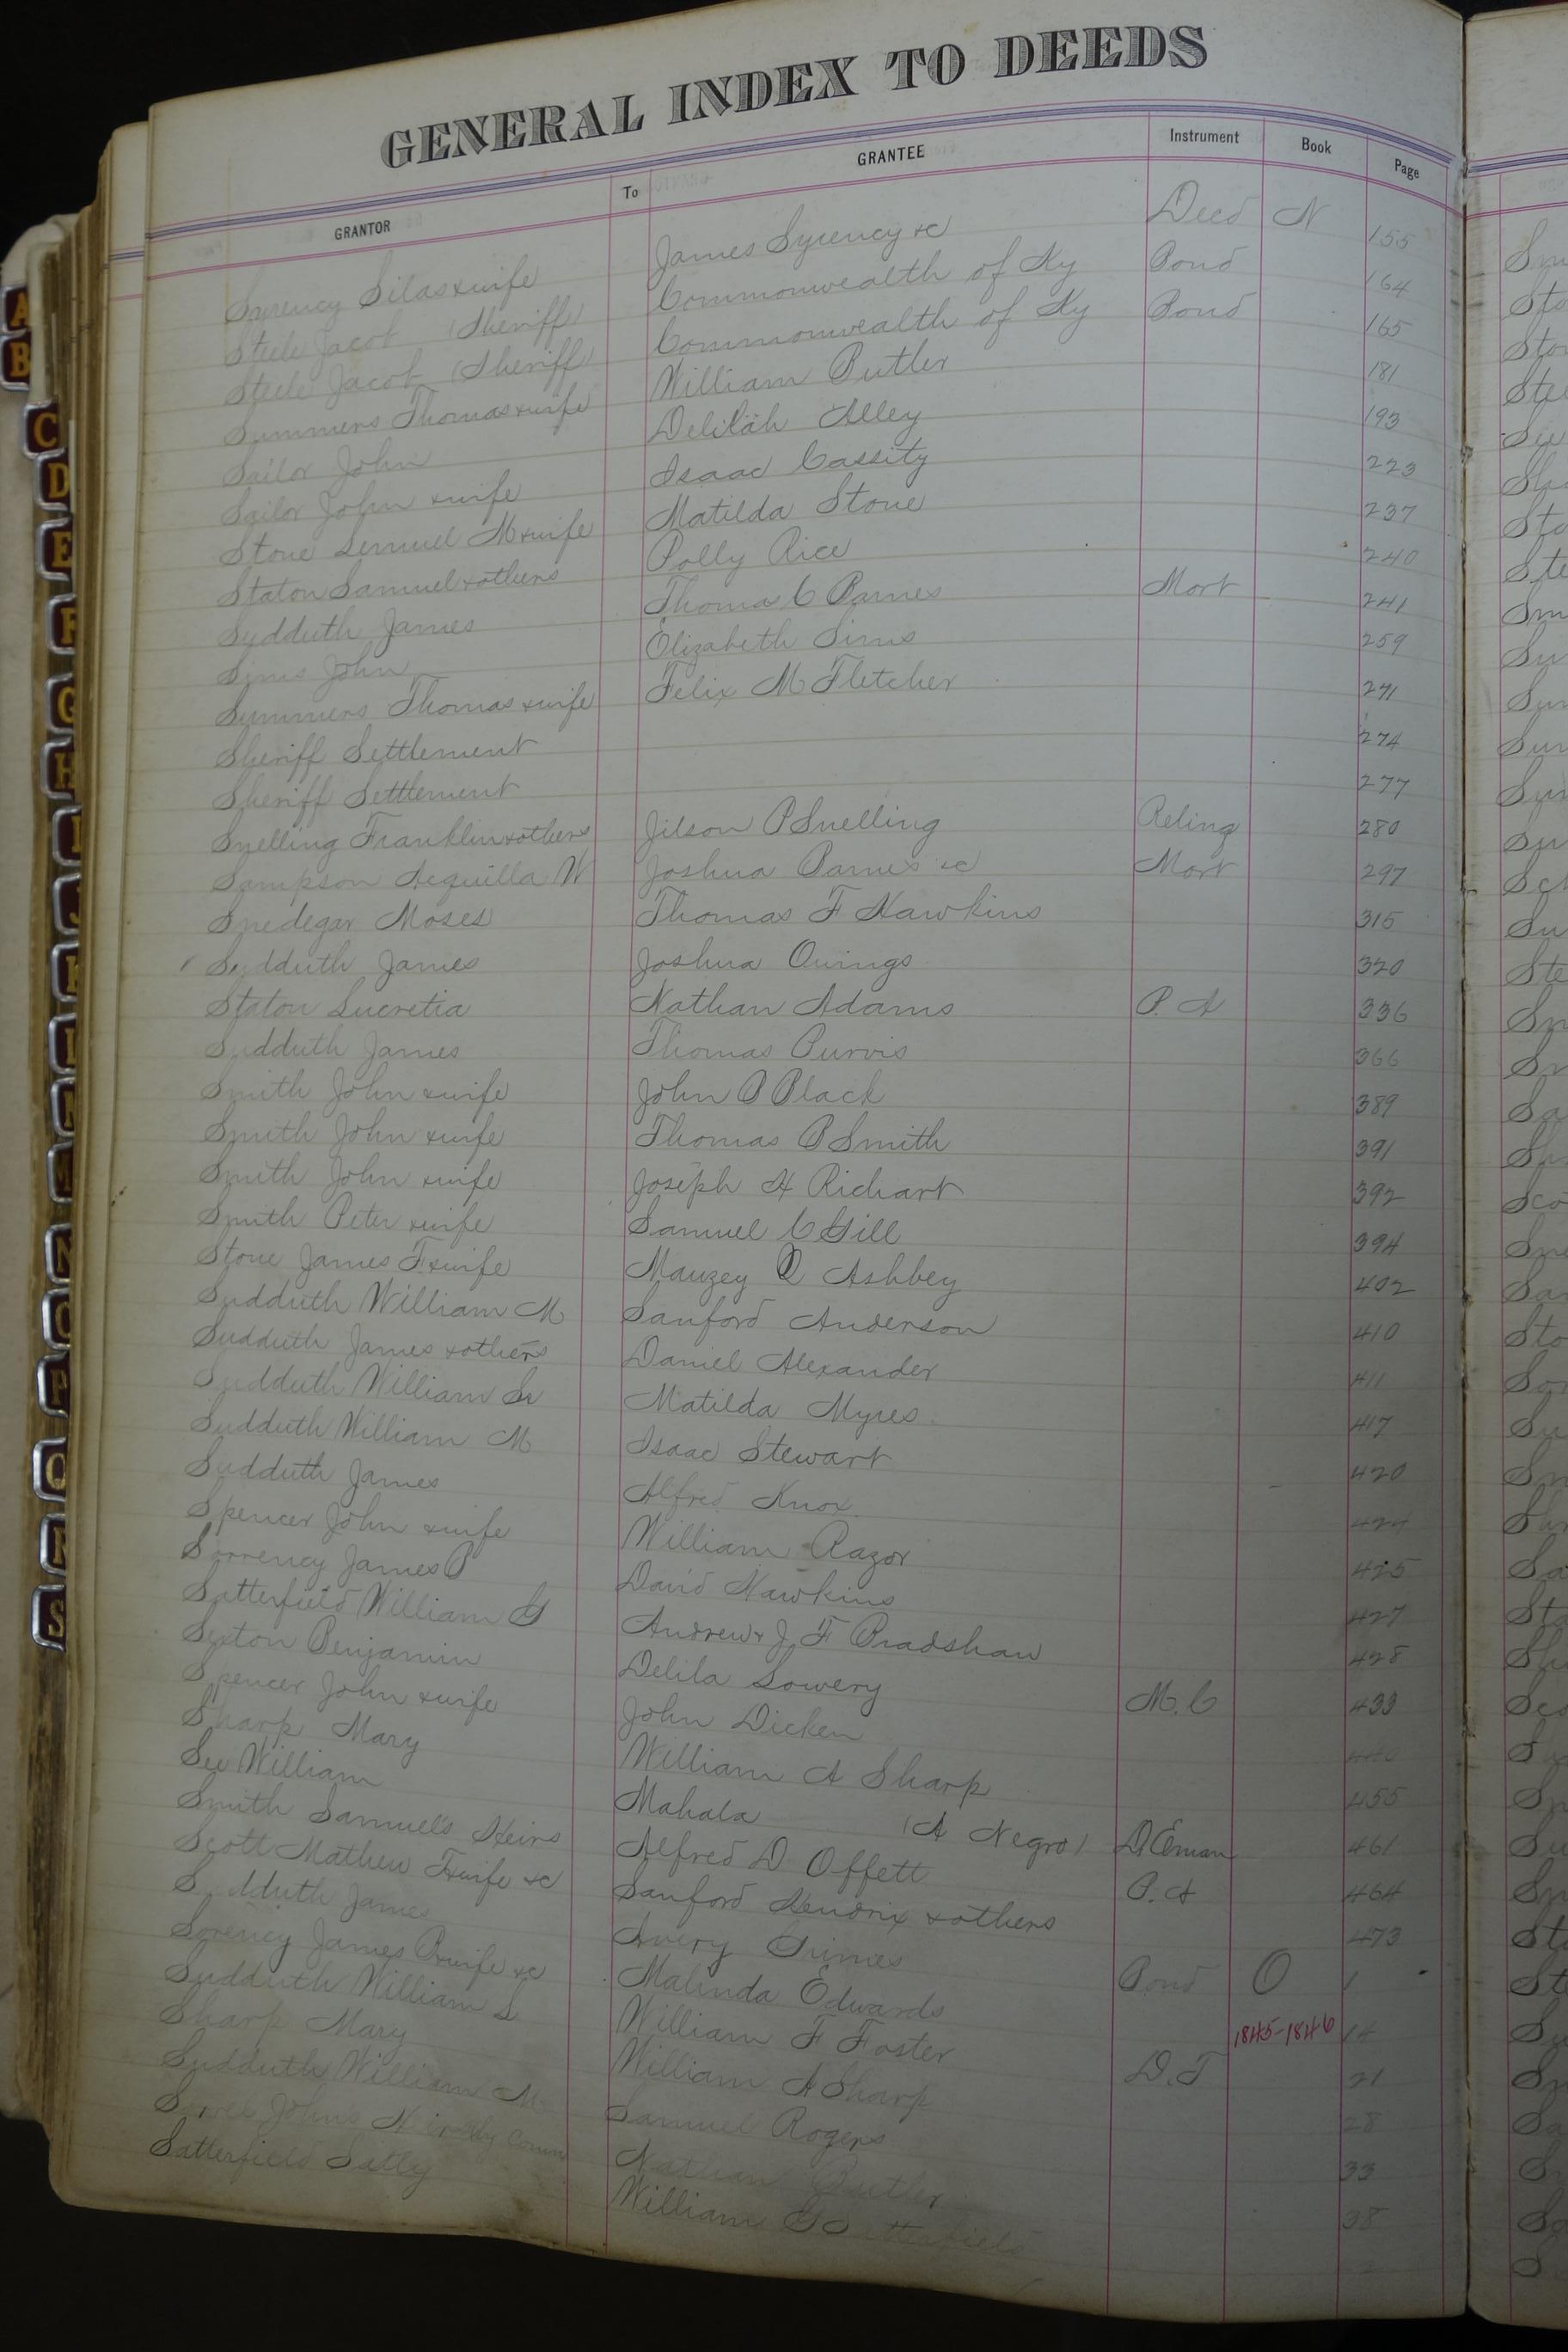 GENERAL INDEX TO DEEDS
GRANTOR To GRANTEE Instrument Book Page
Syrency Silas & wife James Syrency &c Deed N 155
Steele Jacob (Sheriff) Commonwealth of Ky Bond 164
Steele Jacob (Sheriff) Commonwealth of Ky Bond 165
Summers Thomas & wife William Butler 181
Sailor John Delilah Alley 193
Sailor John & wife Isaac Cassity 223
Stone Lemuel M & wife Matilda Stone 237
Staton Samuel & others Polly Rice 240
Sydduth James Thomas C Barnes Mort 241
Sims John Elizabeth Sims 259
Summers Thomas & wife Felix M Fletcher 271
Sheriff Settlement 274
Sheriff Settlement 277
Snelling Franklin & others Jilson P Snelling Relinq 280
Sampson Aequilla W Joshua Barnes &c Mort 297
Snedegar Moses Thomas F Hawkins 315
Sudduth James Joshua Owings 320
Staton Lucretia Nathan Adams P. A 336
Sudduth James Thomas Purvis 366
Smith John & wife John B Black 389
Smith John & wife Thomas B Smith 391
Smith John & wife Joseph H Richart 392
Smith Peter & wife Samuel C Gill 394
Stone James F & wife Mauzey Q Ashbey 402
Sudduth William M Sanford Anderson 410
Sudduth James & others Daniel Alexander 411
Sudduth William Sr Matilda Myres 417
Sudduth William M Isaac Stewart 420
Sudduth James Alfred Knox 424
Spencer John & wife William Razor 425
Sorrency James P David Hawkins 427
Satterfield William G Andrew & J. F Bradshaw 428
Sexton Benjamin Delila Lowery M. C 433
Spencer John & wife John Dicken 440
Sharp Mary William A Sharp 455
See William Mahala (A Negro) D. Eman 461
Smith Samuels Heirs Alfred D Offett P. A 464
Scott Mathew F & wife &c Sanford Hendrix & others 473
Sudduth James Avery Grimes Bond O 1
Sorency James P & wife &c Malinda Edwards 1845-1846 14
Sudduth William S William F Foster D. T 21
Sharp Mary William A Sharp 28
Sudduth William M Samuel Rogers 33
Johns Heirs by Comm Nathan Butler 38
Satterfield Sally William G Satterfield